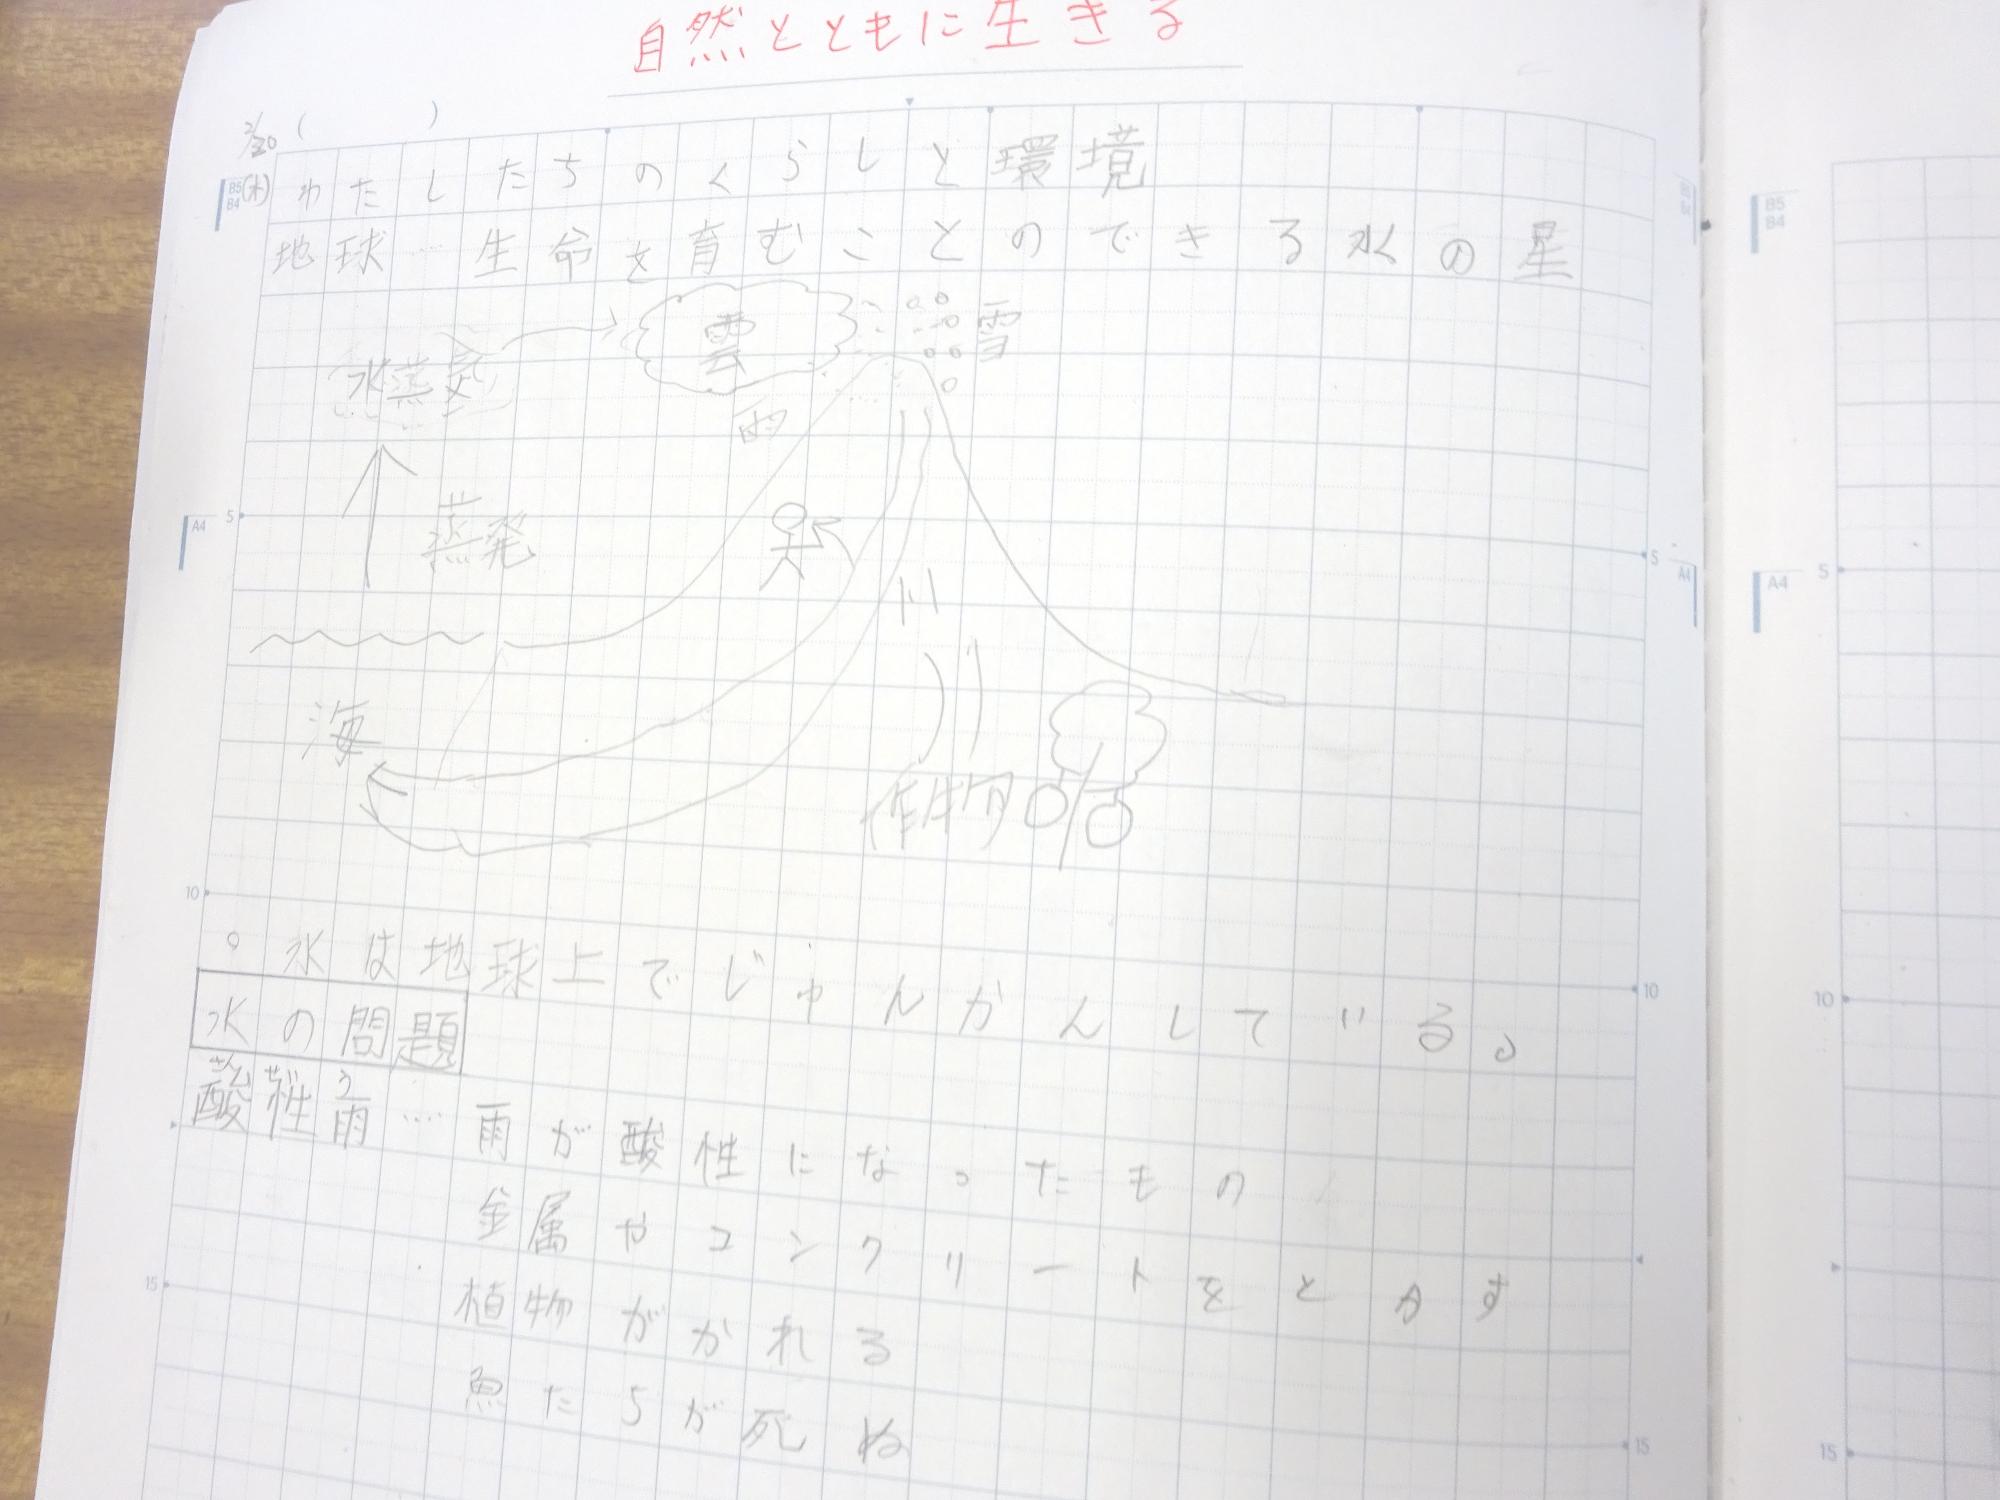 自然とともに生きる
2/20 (   )
(木) わたしたちのくらしと環境
地球…生命を育むことのできる水の星
水蒸気
雲
雪
雨
蒸発
海
作物
。水は地球上でじゅんかんしている。
水の問題
さん せい う
酸性雨…雨が酸性になったもの
金属やコンクリートをとかす
植物がかれる
魚たちが死ぬ
B5
B4
A4
5
10
15
B5
B4
A4
5
10
15
B5
B4
A4
5
10
15